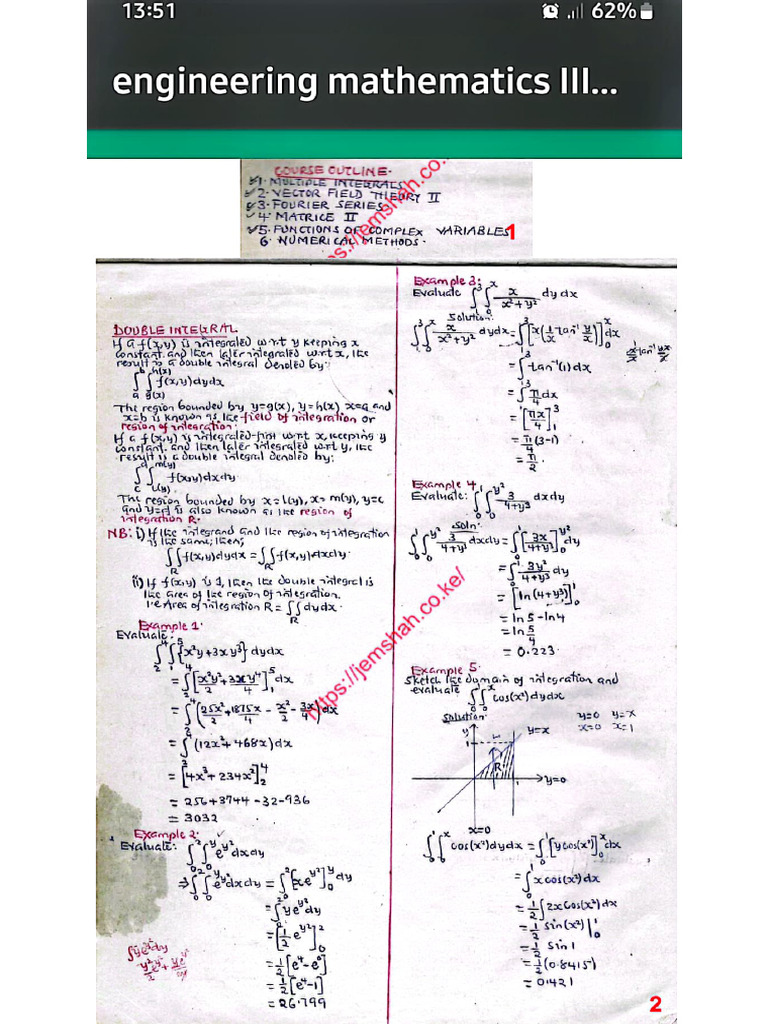 13:51 62%
engineering mathematics III...
COURSE OUTLINE.
1. MULTIPLE INTEGRALS
2. VECTOR FIELD THEORY II
3. FOURIER SERIES
4. MATRICE II
5. FUNCTIONS OF COMPLEX VARIABLES
6. NUMERICAL METHODS.
1
DOUBLE INTEGRAL
If a f(x,y) is integrated w.r.t y keeping x
constant and then later integrated w.r.t x, the
result is a double integral denoted by:
∫_a^b ∫_{g(x)}^{h(x)} f(x,y)dydx
The region bounded by y=g(x), y=h(x) x=a and
x=b is known as the field of integration or
region of integration.
If a f(x,y) is integrated first w.r.t x, keeping y
constant and then later integrated w.r.t y, the
result is a double integral denoted by:
∫_c^d ∫_{l(y)}^{m(y)} f(x,y)dxdy.
The region bounded by x=l(y), x=m(y), y=c
and y=d is also known as the region of
integration R.
NB: i) If the integrand and the region of integration
is the same, then,
∫∫_R f(x,y)dydx = ∫∫_R f(x,y)dxdy.
ii) If f(x,y) is 1, then the double integral is
the area of the region of integration.
i.e Area of integration R = ∫∫_R dydx.
Example 1.
Evaluate:
∫_2^4 ∫_1^5 {x²y+3xy³}dydx
= ∫_2^4 [x²y²/2 + 3xy⁴/4]_1^5 dx
= ∫_2^4 (25x²/2 + 1875x/4 - x²/2 - 3x/4)dx
= ∫_2^4 (12x²+468x)dx
= [4x³+234x²]_2^4
= 256+3744-32-936
= 3032
Example 2.
Evaluate: ∫_0^2 ∫_0^y e^{y²}dxdy
⇒ ∫_0^2 ∫_0^y e^{y²}dxdy = ∫_0^2 [xe^{y²}]_0^y dy
= ∫_0^2 ye^{y²}dy
= [1/2 e^{y²}]_0^2
= 1/2[e⁴-e⁰]
= 1/2[e⁴-1]
= 26.799
Example 3:
Evaluate ∫_1^3 ∫_0^x x/(x²+y²) dydx
Solution:
∫_1^3 ∫_0^x x/(x²+y²) dydx = ∫_1^3 [x(1/x tan⁻¹ y/x)]_0^x dx
= ∫_1^3 tan⁻¹(1)dx
= ∫_1^3 π/4 dx
= [πx/4]_1^3
= π/4(3-1)
= π/2
Example 4.
Evaluate: ∫_0^1 ∫_0^{y²} 3/(4+y³) dxdy
soln.
∫_0^1 ∫_0^{y²} 3/(4+y³) dxdy = ∫_0^1 [3x/(4+y³)]_0^{y²} dy
= ∫_0^1 3y²/(4+y³) dy
= [ln(4+y³)]_0^1
= ln5-ln4
= ln 5/4
= 0.223
Example 5.
Sketch the domain of integration and
evaluate ∫_0^1 ∫_0^x cos(x²)dydx
Solution.
y=0 y=x
x=0 x=1
y
1
y=x
R
1
y=0
x=0
∫_0^1 ∫_0^x cos(x²)dydx = ∫_0^1 [ycos(x²)]_0^x dx
= ∫_0^1 xcos(x²)dx
= 1/2 ∫2xcos(x²)dx
= 1/2 sin(x²)|_0^1
= 1/2 sin1
= 1/2(0.8415)
= 0.421
https://jemshah.co.ke/
2